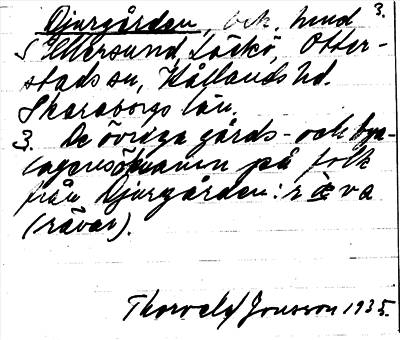 Djurgården, bek. hmd 3.
S Ullersund, Läckö, Otter-
stads sn, Kållands hd.
Skaraborgs län.
3. De övriga gårds- och bya-
lagens öknamn på folk
från Djurgården: ræva
(rävar).
Thorvald Jonsson 1935.